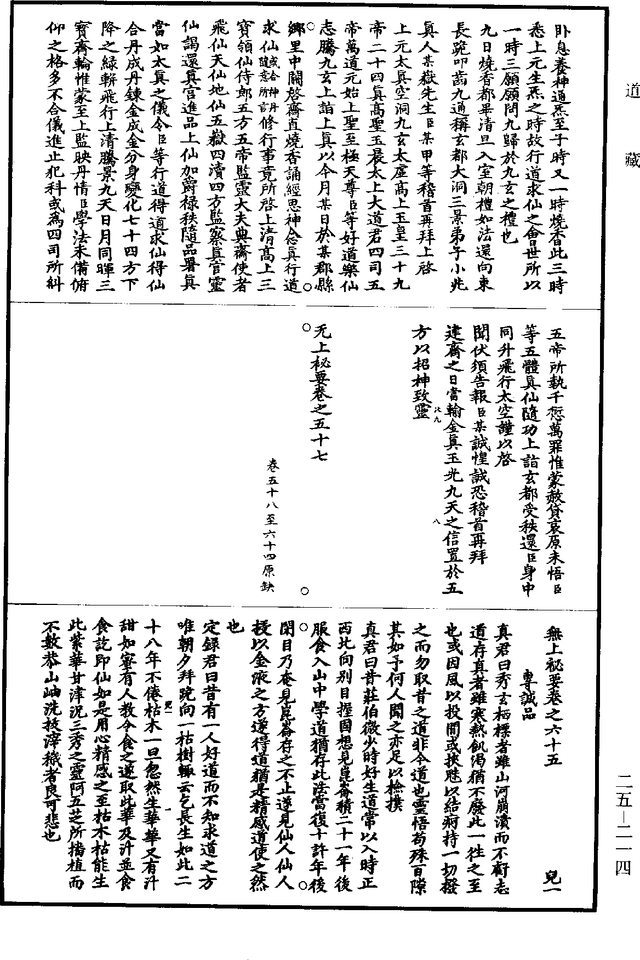 道藏
卧息養神通炁至子時又一時燒香此三時
悉上元生炁之時故行道求仙之會世所以
一時三願願問九歸於九玄之禮也
九日燒香都畢清旦入室朝禮如法還向東
長跪叩齒九通稱玄都大洞三景弟子小兆
真人某嶽先生臣某甲等稽首再拜上啓
上元太真空洞九玄太虛高上玉皇三十九
帝二十四真高聖玉晨太上大道君四司五
帝萬道元始上聖至極天尊臣等好道樂仙
志騰九玄上詣上真以今月某日於某郡縣
鄉里中開啓齋直燒香誦經思神念真行道
求仙或合神丹隨意所言修行事竟所啓上清高上三
寶領仙侍郎五方五帝監靈大夫典齋使者
飛仙天仙地仙五嶽四瀆四方監察真官靈
仙謁還真宮進品上仙加爵祿秩隨品署真
當如太真之儀令臣等行道得道求仙得仙
合丹成丹鍊金成金分身變化七十四方下
降之緑軿飛行上清騰景九天日月同暉三
寳齋輪惟蒙至上監映丹情臣學法未備俯
仰之格多不合儀進止犯科或為四司所糾
五帝所執千愆萬罪惟蒙赦貸哀原未悟臣
等五體真仙隨功上詣玄都受秩還臣身中
同升飛行太空謹以啓
聞伏須告報臣某誠惶誠恐稽首再拜
建齋之日當輸金真玉光九天之信置於五
方以招神致靈
无上秘要卷之五十七
卷五十八至六十四原缺
無上秘要卷之六十五 兒一
專誠品
真君曰秀玄栖標者雖山河崩潰而不𮗚志
道存真者雖寒熱飢渴猶不廢此一往之至
也或因風以投間或挾魅以結痾持一切撥
之而勿取昔之道非今道也靈悟苟殊百隙
其如予何人聞之亦足以檢撲
真君曰昔莊伯微少時好生道常以入時正
西北向别目握固想見崑崙積二十一年後
服食入山中學道猶存此法當復十許年後
閉目乃奄見崑崙存之不止遂見仙人仙人
授以金液之方遂得道猶是精感道使之然
也
定録君曰昔有一人好道而不知求道之方
唯朝夕拜跪向一枯樹輙云乞長生如此二
十八年不倦枯木一旦忽然生華華又有汁
甜如蜜有人教令食之遂取此華及汁並食
食訖即仙如是用心精感之至枯木枯能生
此紫華甘津況三秀之靈阿五芝所揚植而
不數恭山岫洗拔滓穢者良可悲也
二五—二一四